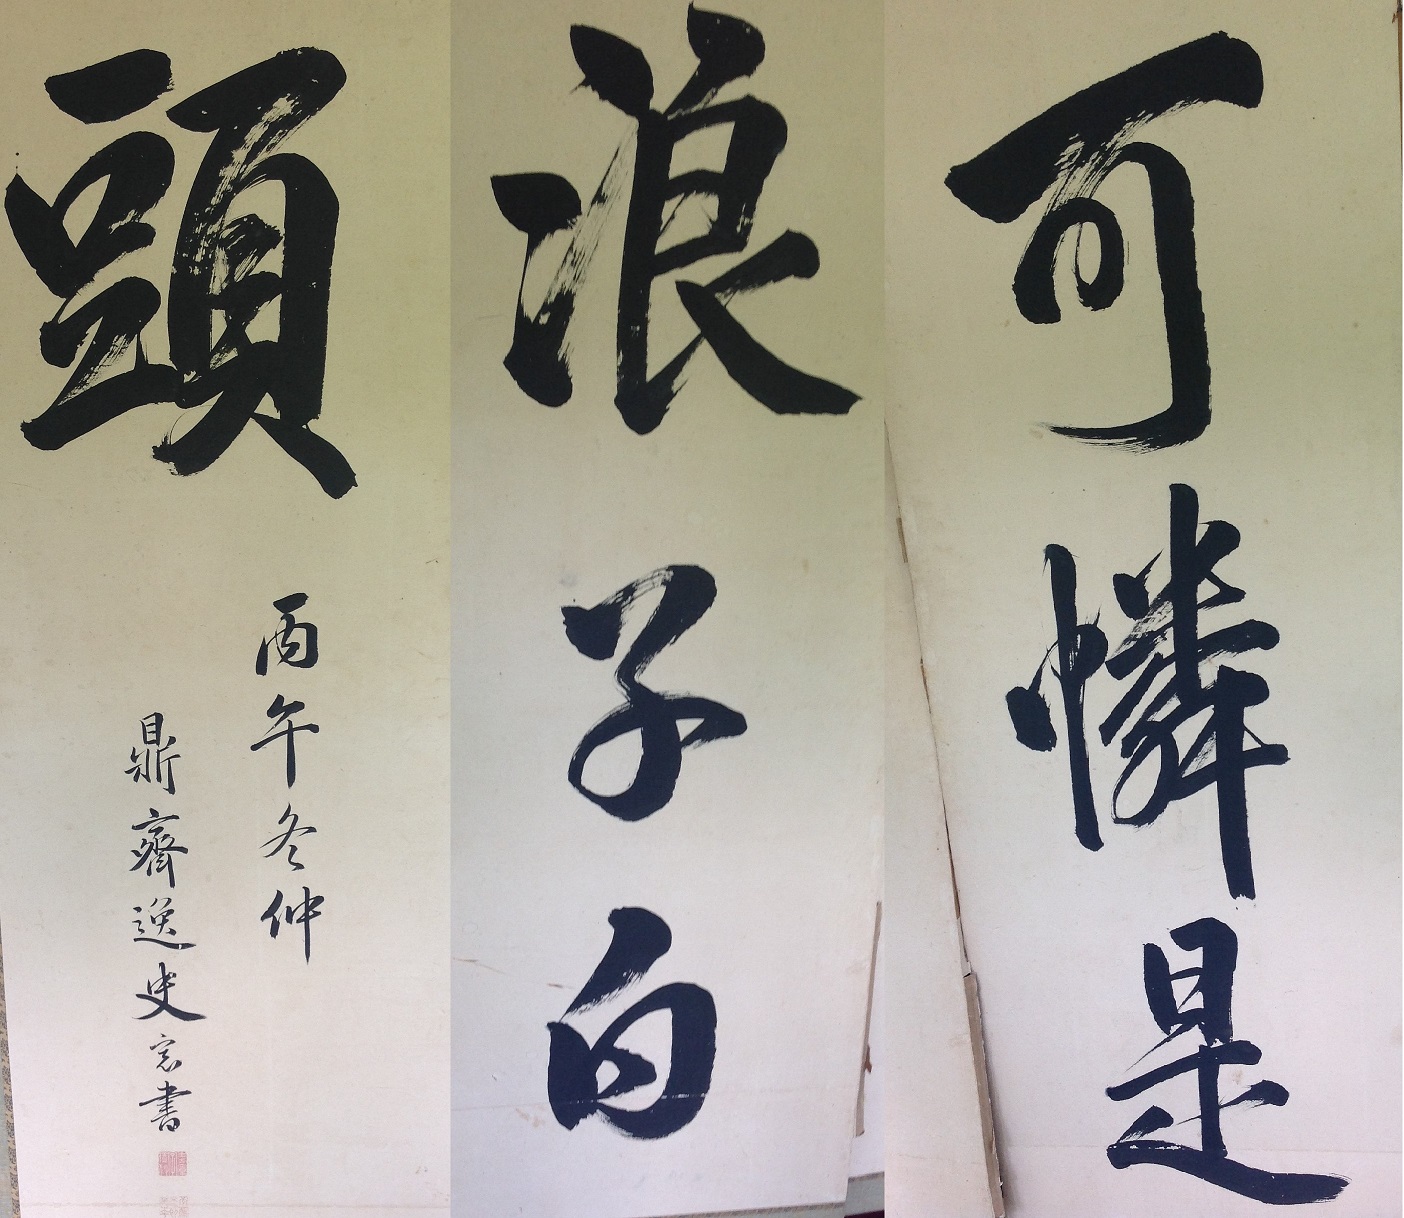 可憐是
浪子白
頭
丙午冬仲
鼎齊逸史宏書